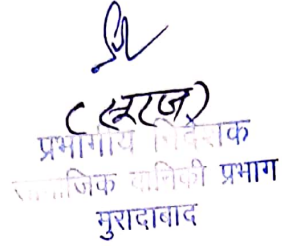 (सूरज)
प्रभागीय निदेशक
सामाजिक वानिकी प्रभाग
मुरादाबाद